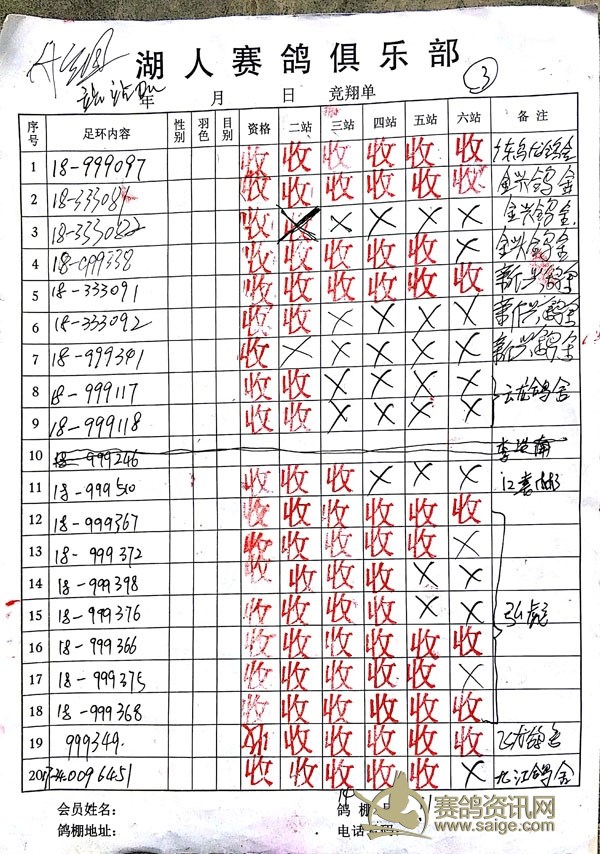 湖人赛鸽俱乐部
③
年 月 日 竞翔单
序号 足环内容 性别 羽色 目别 资格 二站 三站 四站 五站 六站 备注
1 18-999097 收 收 收 收 收 收
2 18-333081 收 收 收 收 收 收 金兴鸽舍
3 18-333082 收 收 × × × × 金兴鸽舍
4 18-999338 收 收 收 收 收 × 金兴鸽舍
5 18-333091 收 收 收 收 收 收 新兴鸽舍
6 18-333092 收 收 × × × × 新兴鸽舍
7 18-999341 收 × × × × × 新兴鸽舍
8 18-999117 收 收 × × × × 云龙鸽舍
9 18-999118 收 收 × × × ×
10 18-999246
11 18-999510 收 收 收 × × × 江喜彬
12 18-999367 收 收 收 收 收 收
13 18-999372 收 收 收 收 收 ×
14 18-999398 收 收 收 收 × ×
15 18-999376 收 收 收 收 × × 弘彪
16 18-999366 收 收 收 收 收 收
17 18-999375 收 收 收 收 收 ×
18 18-999368 收 收 收 收 收 收
19 999349. 收 收 收 收 收 收 飞龙鸽舍
20 0096451 收 收 收 收 收 × 九江鸽舍
会员姓名: 鸽棚
鸽棚地址: 电话号码:
赛鸽资讯网
www.saige.com